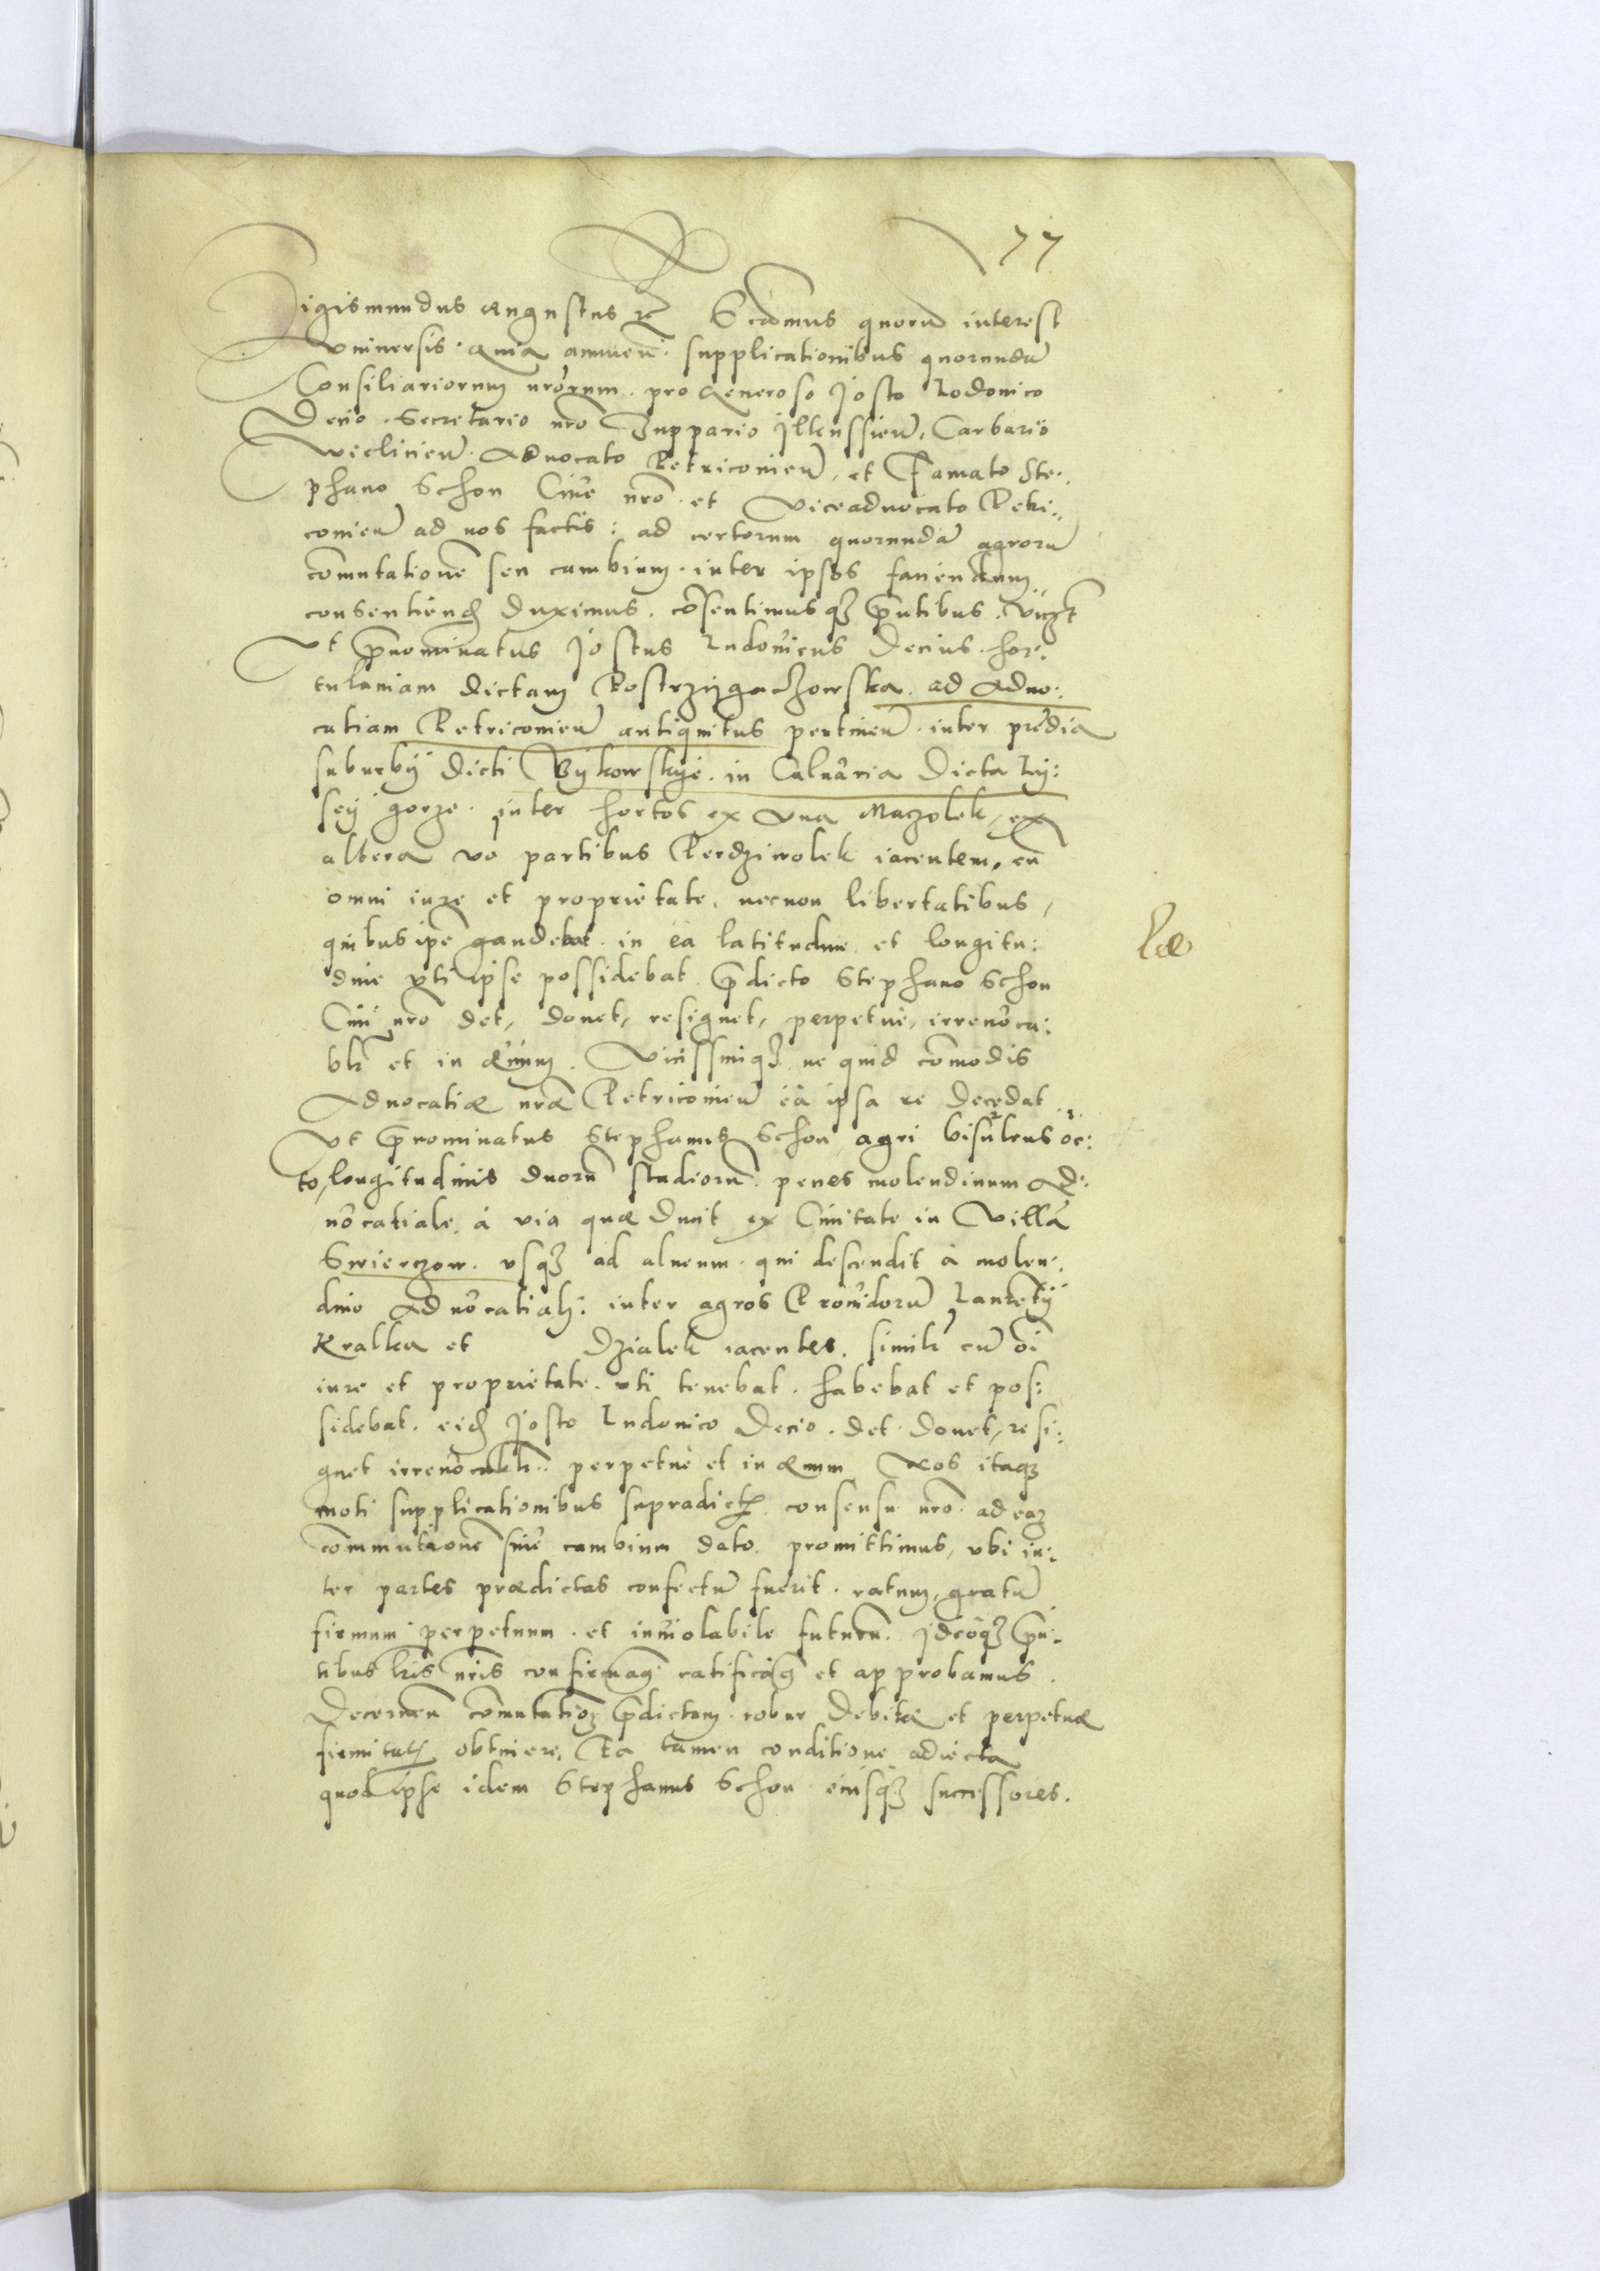 77
Sigismundus Augustus etc Scĩmus quorũ interest
vniuersis. Quia annuen̄. supplicationibus quorundã
Consiliariorum nr̃orum. pro Generoso Josto Lodouico
Decio. Secretario nr̃o Zuppario Ilkussien̄. Carbario
Vieliciien̄. Aduocato Petriconien̄. et Famato Ste:
phano Schon Ciue nr̃o. et Viceaduocato Petri:
conien̄ ad nos factis: ad certorum quorundã agrorũ
com̃utationẽ seu cambium. inter ipsos faciendum
consentiend̃ duximus. cõsentimusq3 p̃ntibus. Vicz̃t
Vt p̃nominatus Jostus Ludouicus Decius. hor:
tulaniam dictam Postrzygaczowska. ad Aduo:
catiam Petriconien̄ antiquitus pertinen̄. inter prẽdia
suburbÿ dicti Bykowskye. in Caluaria dicta Ly:
sey gorze. inter hortos ex vna Maczolek, ex
altera vo partibus Perdziwolek iacentem, cũ
omni iure et proprietate. necnon libertatibus,
quibus ipẽ gaudebat. in ea latitudine et longitu:
dine vti ipse possidebat. p̃dicto Stephano Schon
Ciui nr̃o det, donet, resignet, perpetuè, irreuoca:
blr̃ et in æuum. Vicissimq3 ne quid com̃odis
Aduocatiæ nr̃æ Petriconien̄ ea ipsa re decedat.
Vt p̃nominatus Stephanus Schon agri bisulcus oc:
to, longitudinis duorũ stadiorũ. penes molendinum Ad:
uocatiale. à via quæ ducit ex Ciuitate in Villã
Swierczow. vsq3 ad alueum. qui descendit à molen:
dino Aduocatiali: inter agros Prouidorũ Laurentÿ
Kralka et Dzialek iacentes. simili cũ oĩ
iure et proprietate. vti tenebat. habebat et pos:
sidebat. eid̃ Josto Ludouico Decio. det. donet, resi:
gnet irreuocablr̃. perpetuè et in æuum Nos itaq3
moti supplicationibus supradict̃. consensu nr̃o. ad eã
commutionẽ siue cambium dato. promittimus, vbi in:
ter partes prædictas confectũ fuerit. ratum, gratũ
firmum perpetuum. et inuiolabile futurũ. Ideoq3 p̃n:
tibus lr̃is nr̃is confirmam̃. ratificam̃ et approbamus.
Decernen̄ com̃utationẽ p̃dictam. robur debitæ et perpetuæ
firmitatis obtinere. Ea tamen conditione adiecta
quod ipse idem Stephanus Schon eiusq3 successores.